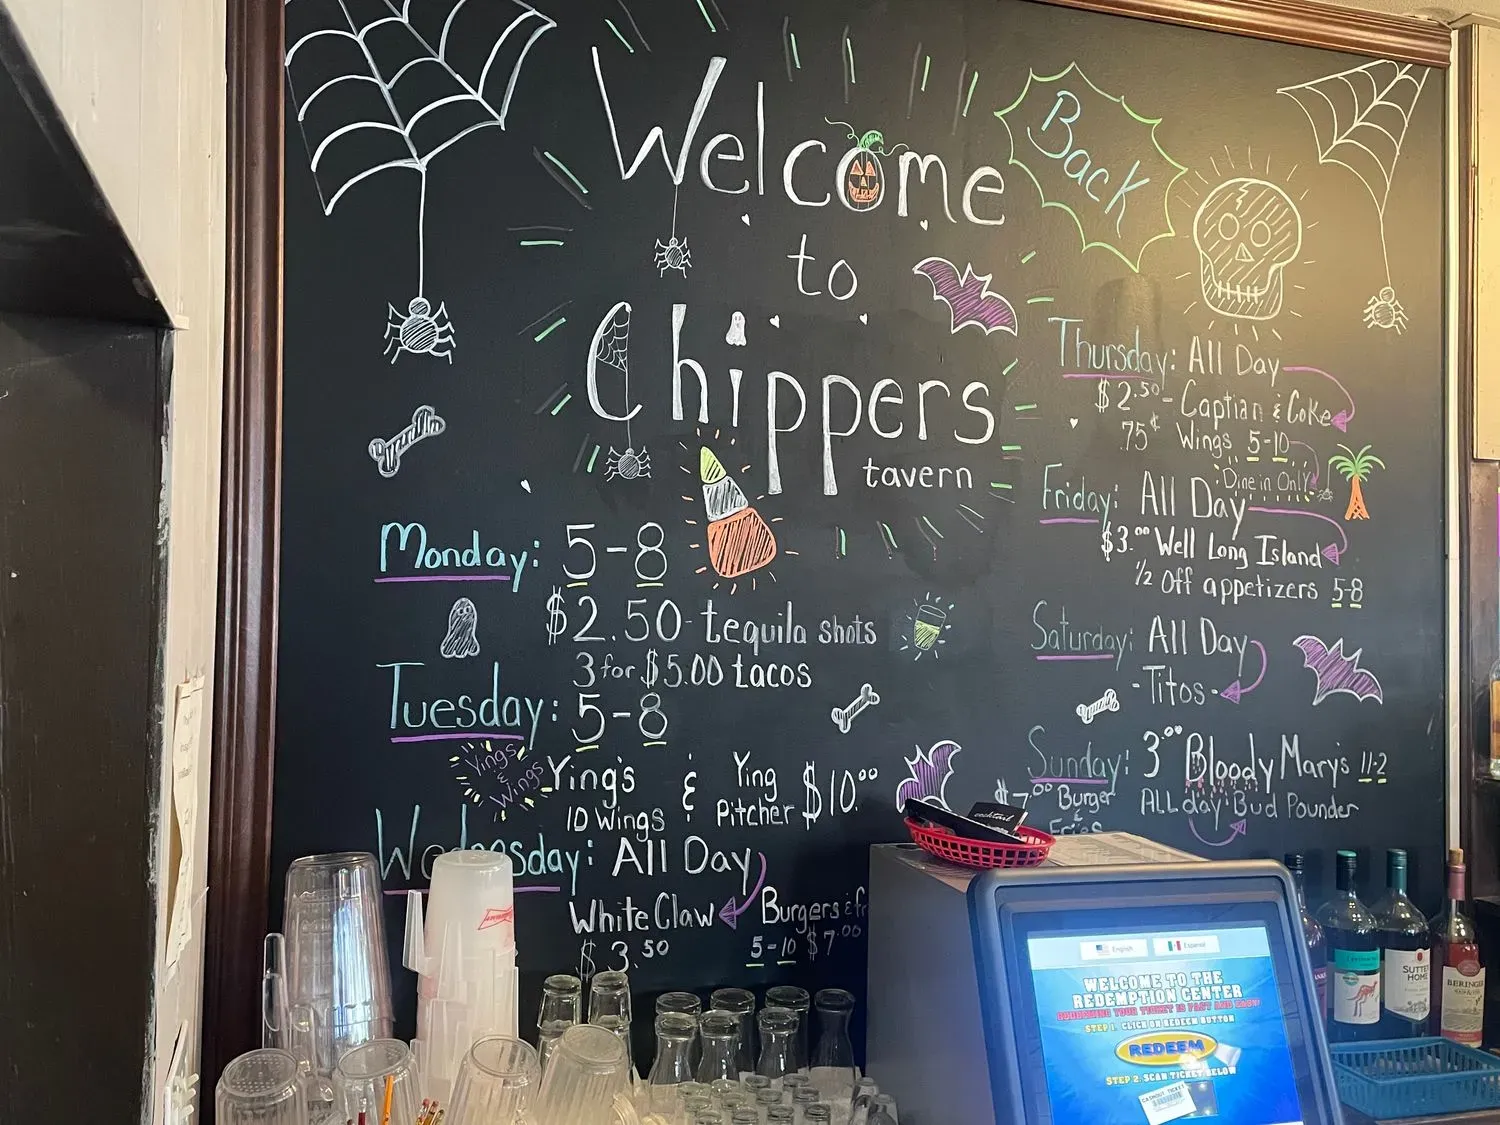 Welcome
Back
to
Chippers
tavern
Monday: 5-8
$2.50-tequila shots
3 for $5.00 tacos
Tuesday: 5-8
Yings
&
Wings
Ying's & Ying
10 Wings Pitcher $10.00
Wednesday: All Day
White Claw
$3.50
Burgers & fr
5-10 $7.00
Thursday: All Day
$2.50-Captian & Coke
75¢ Wings 5-10
Dine in Only
Friday: All Day
$3.00 Well Long Island
1/2 Off appetizers 5-8
Saturday: All Day
-Titos-
Sunday: 3.00 Bloody Mary's 11-2
$7.00 Burger
&
Fries
ALL day: Bud Pounder
cocktail
English
Espanol
WELCOME TO THE
REDEMPTION CENTER
REDEEMING YOUR TICKET IS FAST AND EASY!
STEP 1. CLICK ON REDEEM BUTTON
REDEEM
STEP 2. SCAN TICKET BELOW
CASHOUT TICKET
SUTTER
HOME
BERINGER